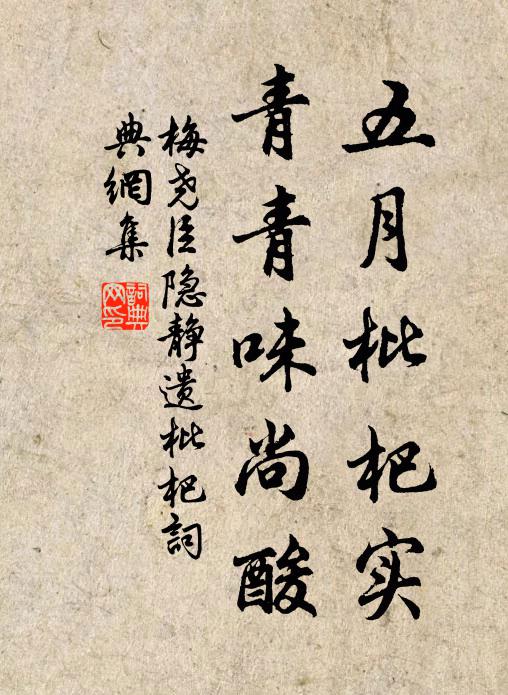 五月枇杷实
青青味尚酸
梅尧臣隐静遗枇杷詞
典網集
詞典網印